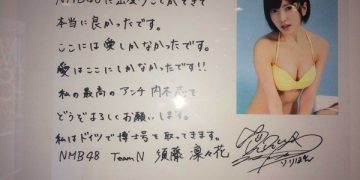 NMB48に出会うことができて
本当に良かったです。
ここには愛しかなかったです。
愛はここにしかなかったです!!
私の最高のアンチ 内木志と
どうぞよろしくお願いします。
私はドイツで博士号を取ってきます。
NMB48 TeamN 須藤 凜々花